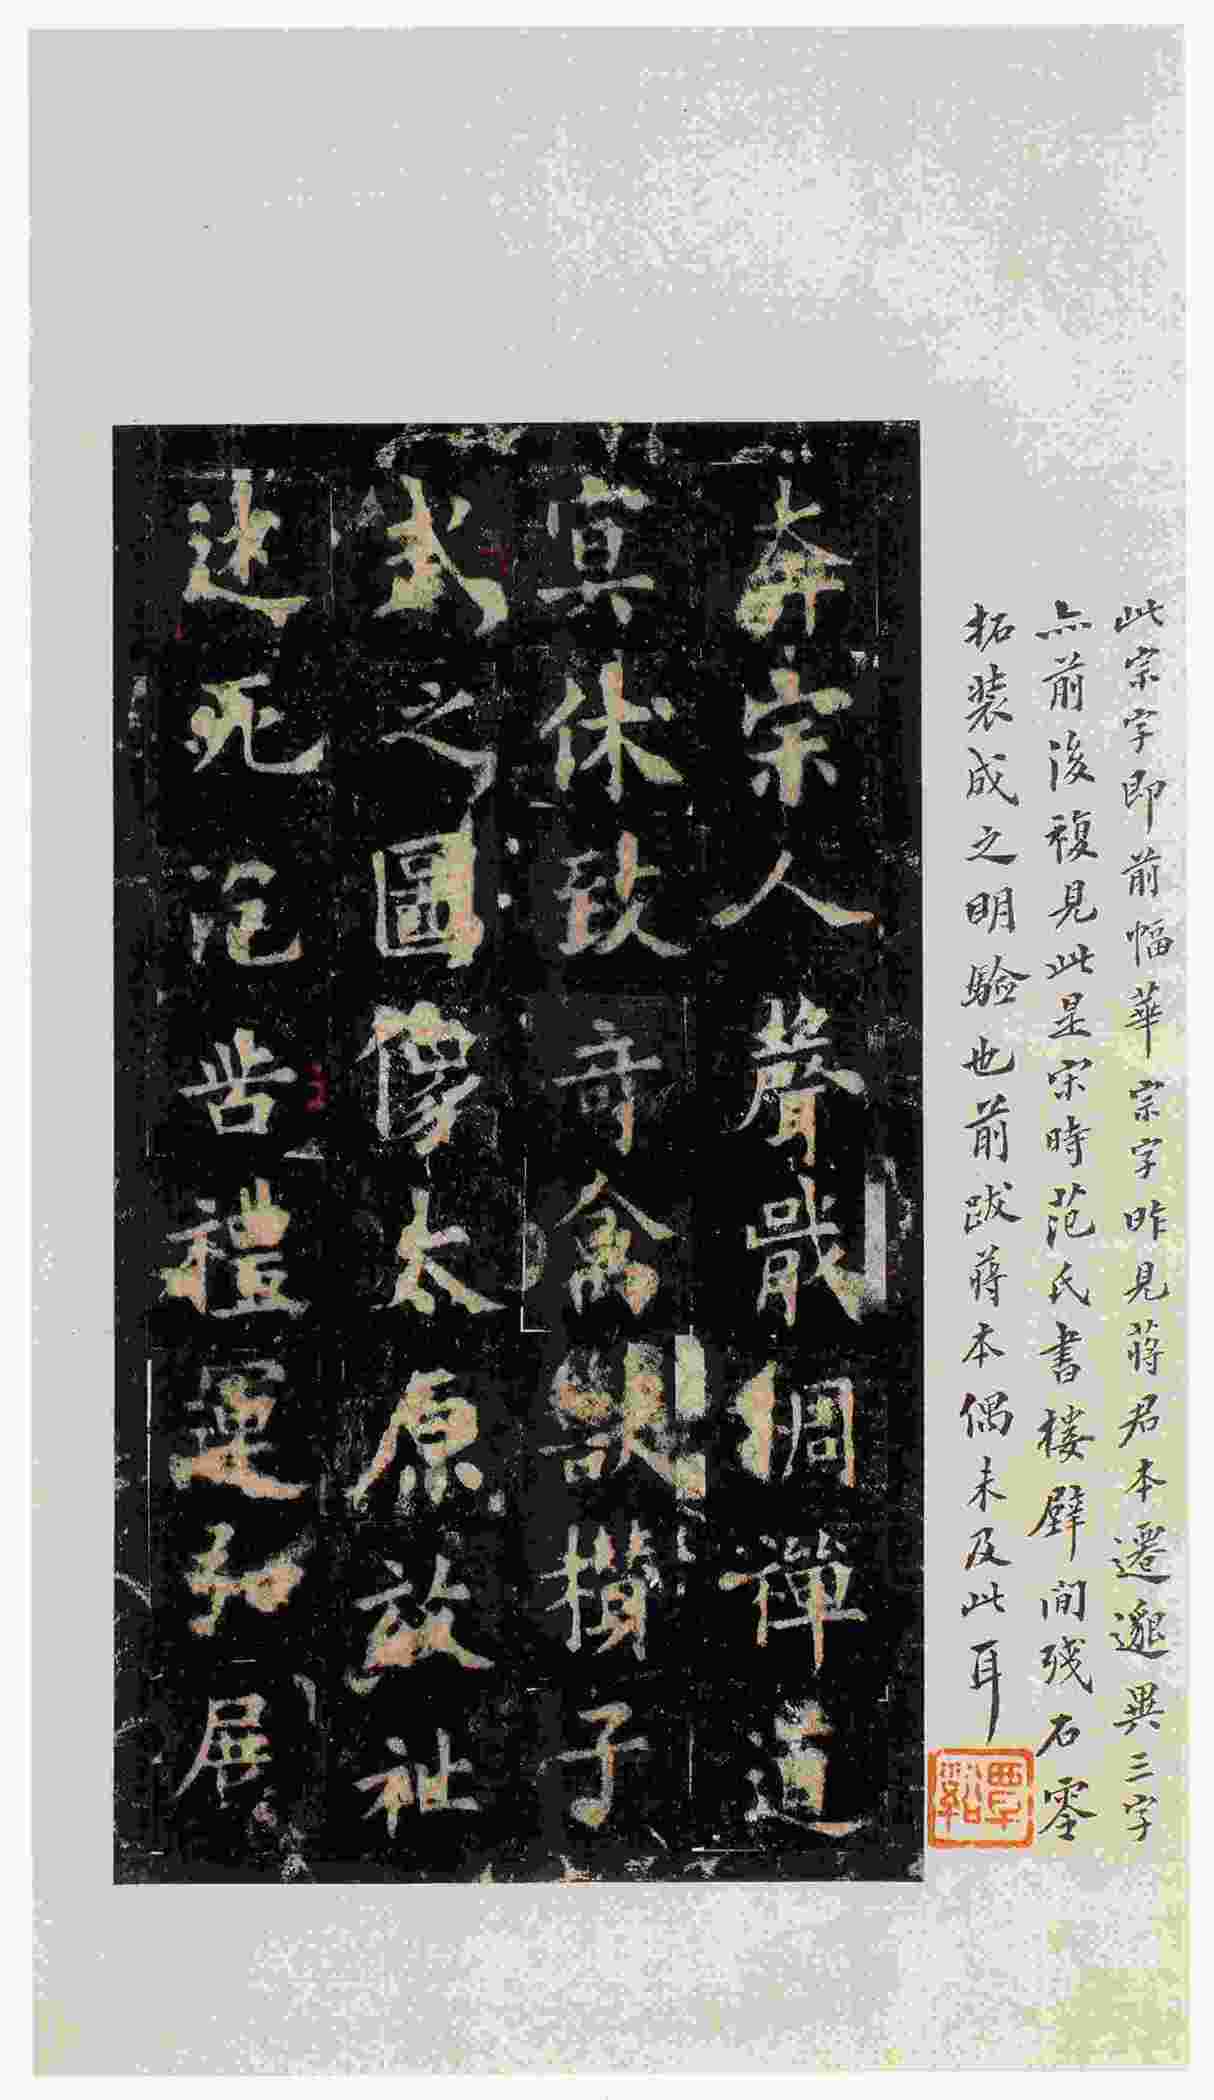 此宗字即前幅華宗字昨見蔣君本遷邈異三字
亦前後複見此是宋時范氏書樓壁間殘石零
拓裝成之明驗也前跋蔣本偶未及此耳
覃谿
奔宗人聲戢綢禪道
冥休致奇禽獸攢子
武之圖像太原放祉
迷死泡皆禮運知展